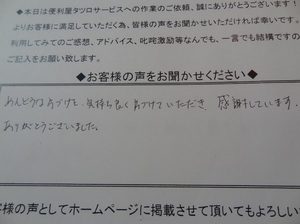 ◆本日は便利屋タツロサービスへの作業のご依頼、誠にありがとうございます!
よりお客様に満足していただく為、皆様の声をお聞かせいただければ幸いです。
利用してみてのご感想、アドバイス、叱咤激励等なんでも、一言でも結構ですの
ご記入をお願い致します。
◆お客様の声をお聞かせください◆
めんどうな片づけを、気持ち良く片づけていただき、感謝しています。
ありがとうございました。
客様の声としてホームページに掲載させて頂いてもよろしい